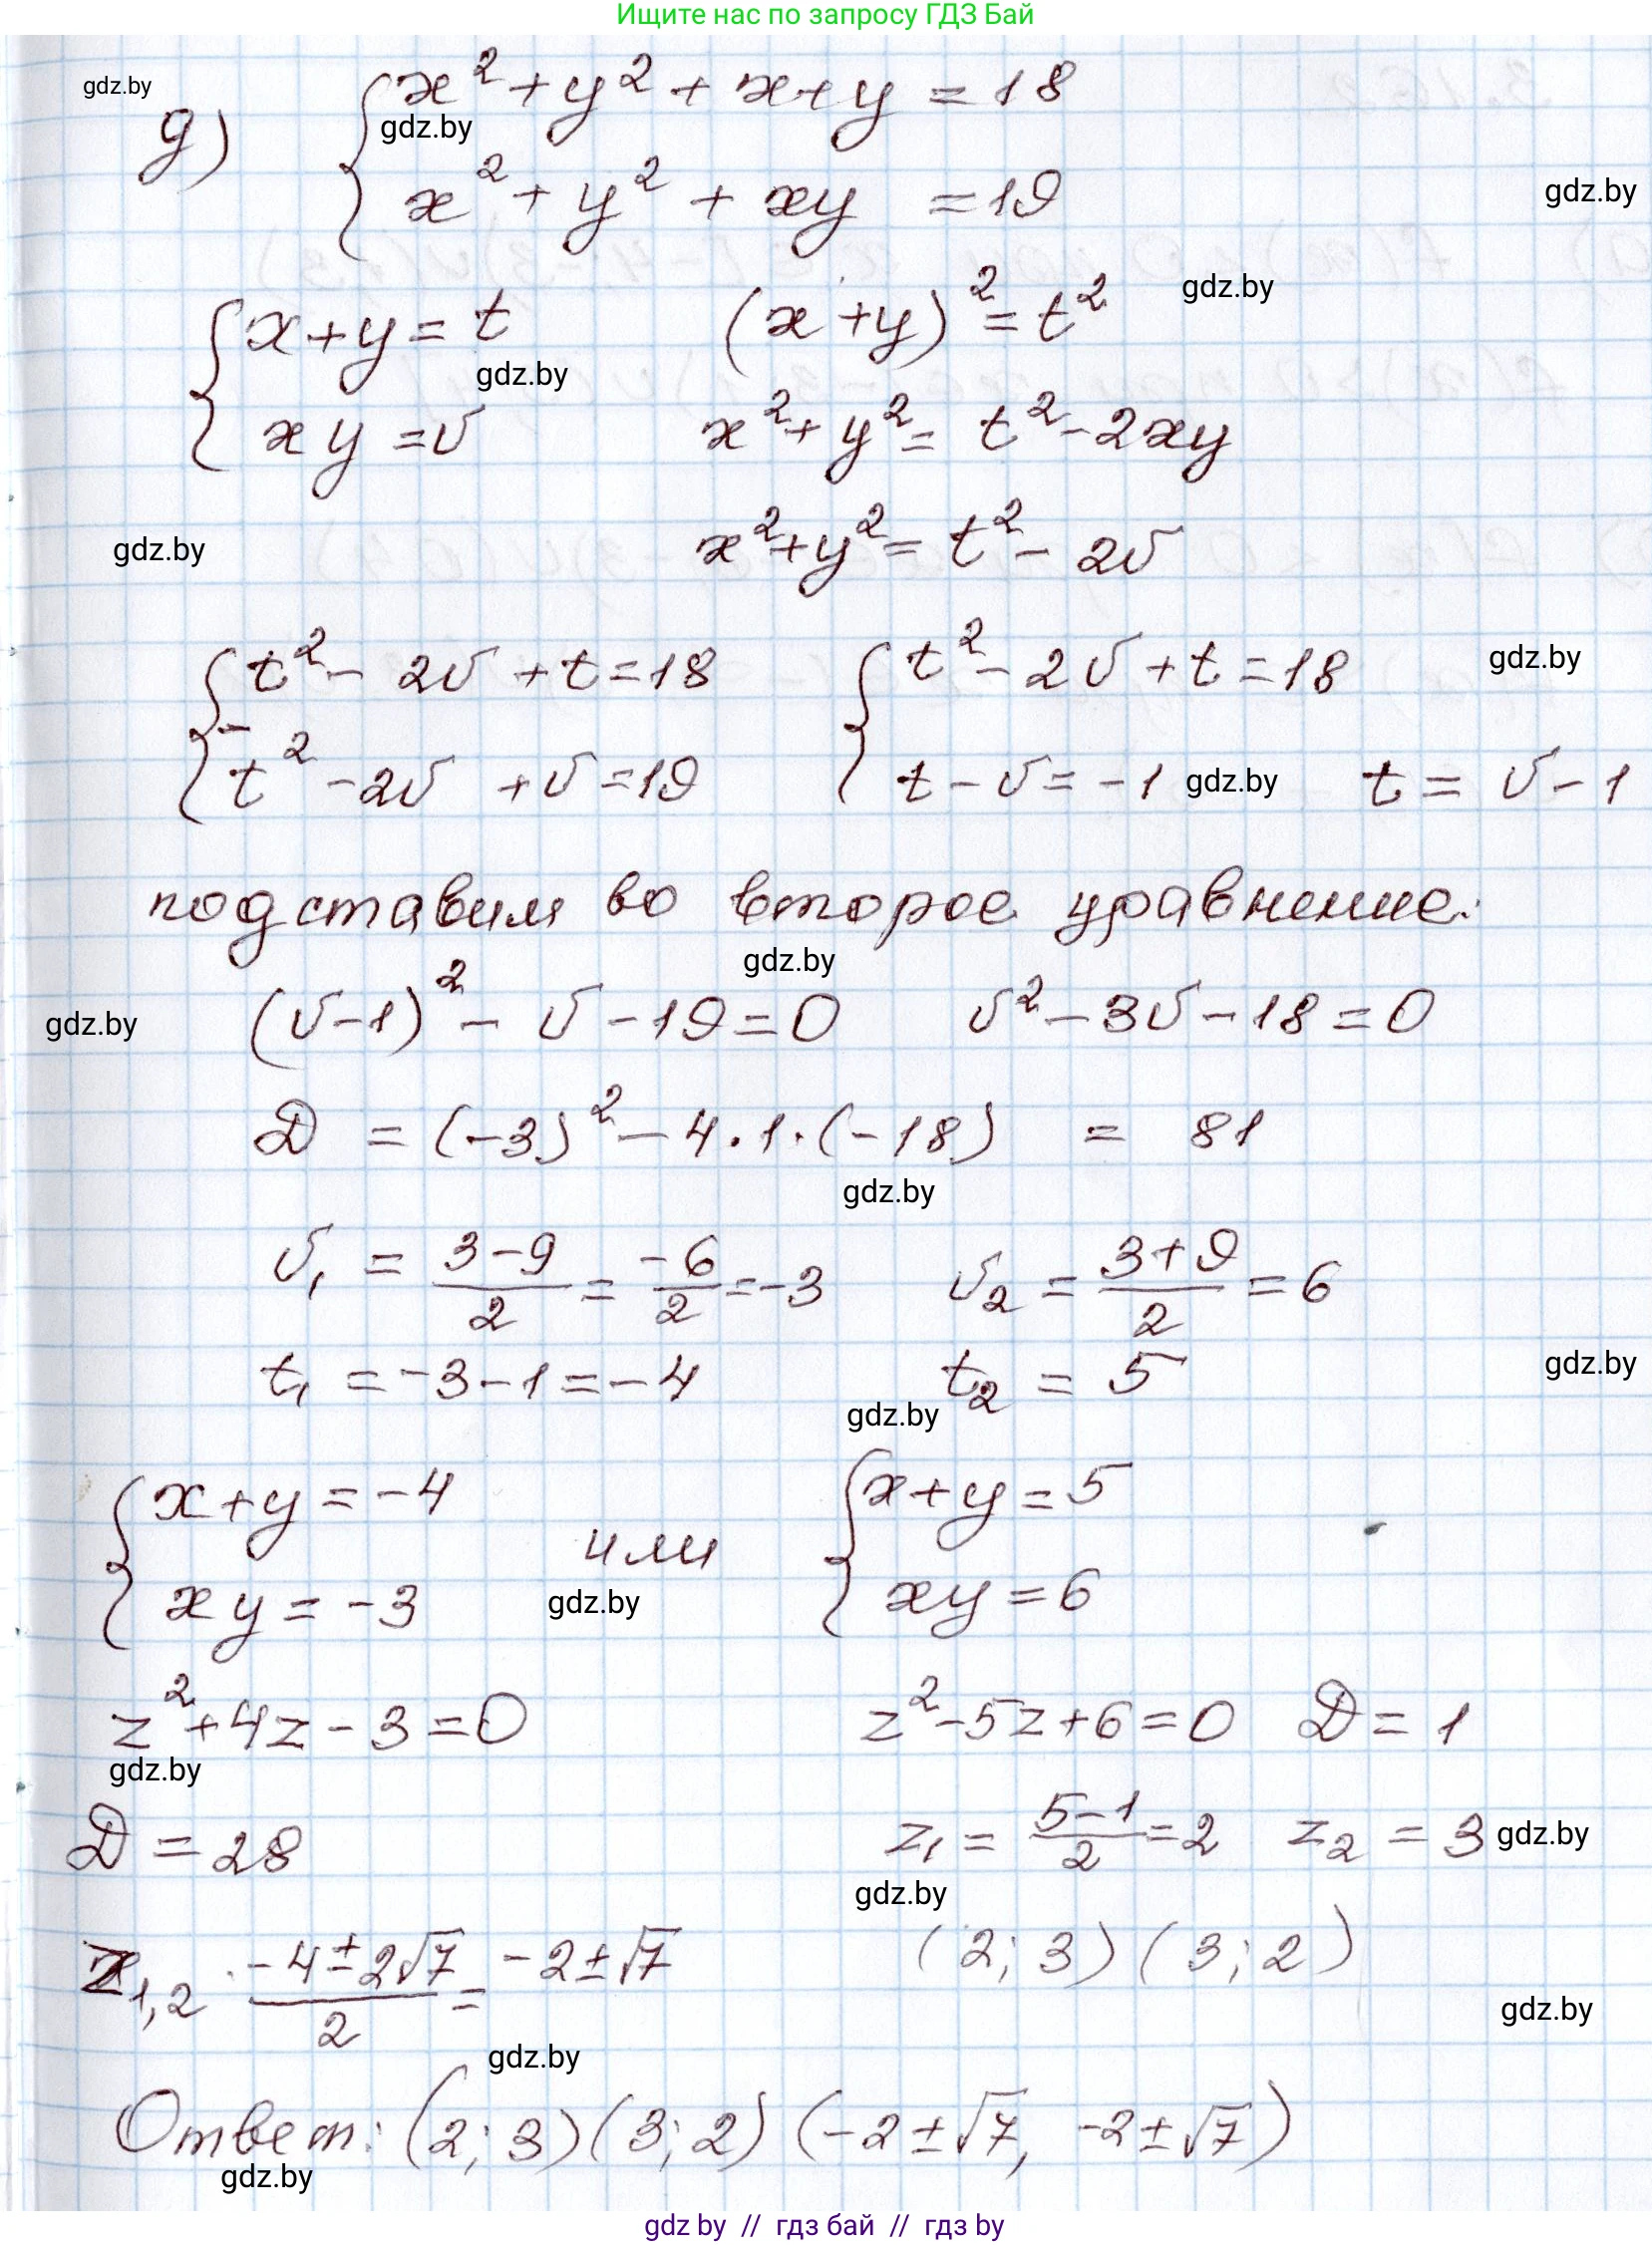 Ищите нас по запросу ГДЗ Бай
gdz.by
д) { x² + y² + x + y = 18
gdz.by
x² + y² + xy = 19
gdz.by
{ x + y = t (x + y)² = t²
gdz.by
gdz.by
xy = v x² + y² = t² - 2xy
gdz.by
x² + y² = t² - 2v
{ t² - 2v + t = 18 { t² - 2v + t = 18
gdz.by
-
t² - 2v + v = 19 t - v = -1 gdz.by t = v - 1
подставим во второе уравнение:
gdz.by
gdz.by
(v - 1)² - v - 19 = 0 v² - 3v - 18 = 0
D = (-3)² - 4·1·(-18) = 81
gdz.by
v₁ = (3-9)/2 = -6/2 = -3 v₂ = (3+9)/2 = 6
t₁ = -3 - 1 = -4 t₂ = 5
gdz.by
gdz.by
{ x + y = -4 или { x + y = 5
xy = -3 gdz.by xy = 6
z² + 4z - 3 = 0 z² - 5z + 6 = 0 D = 1
gdz.by
D = 28 z₁ = (5-1)/2 = 2 z₂ = 3 gdz.by
gdz.by
z₁,₂ (-4 ± 2√7)/2 = -2 ± √7 (2; 3) (3; 2)
gdz.by
gdz.by
Ответ: (2; 3) (3; 2) (-2 ± √7, -2 ± √7)
gdz.by
gdz by // гдз бай // гдз by